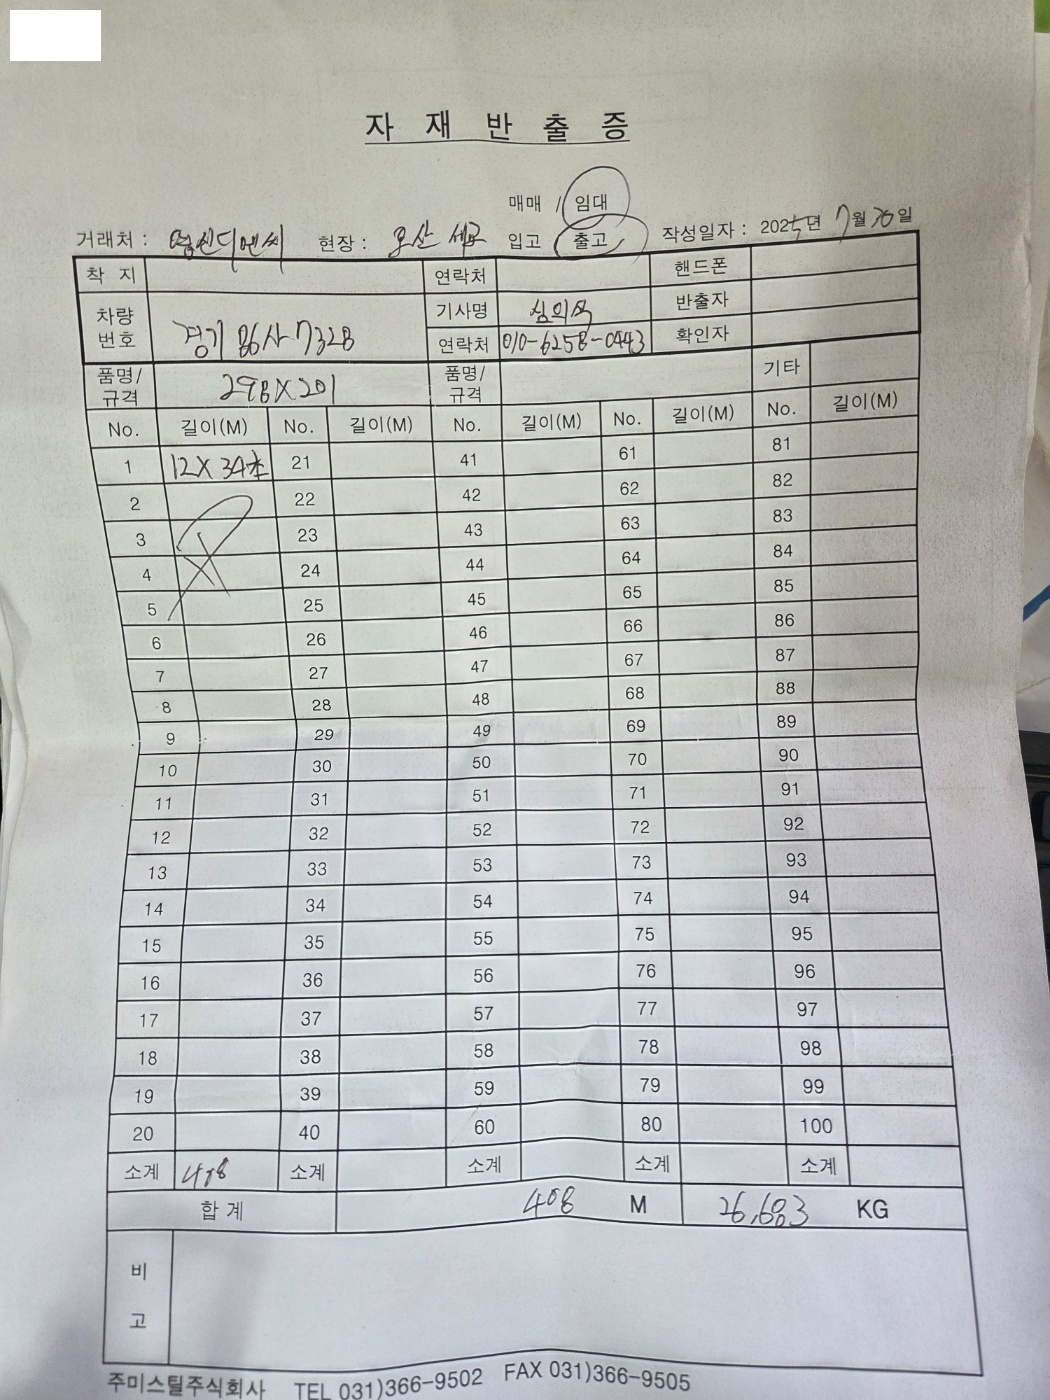 자 재 반 출 증
매매 / 임대
거래처 : 명신디엔씨 현장 : 오산 세교 입고 출고 작성일자 : 2025년 7월 26일
착 지 연락처 핸드폰
차량번호 경기 86사 7328 기사명 반출자
연락처 010-6258-0443 확인자
품명/규격 298X201 품명/규격 기타
No. 길이(M) No. 길이(M) No. 길이(M) No. 길이(M) No. 길이(M)
1 12X34本 21 41 61 81
2 22 42 62 82
3 23 43 63 83
4 24 44 64 84
5 25 45 65 85
6 26 46 66 86
7 27 47 67 87
8 28 48 68 88
9 29 49 69 89
10 30 50 70 90
11 31 51 71 91
12 32 52 72 92
13 33 53 73 93
14 34 54 74 94
15 35 55 75 95
16 36 56 76 96
17 37 57 77 97
18 38 58 78 98
19 39 59 79 99
20 40 60 80 100
소계 408 소계 소계 소계 소계
합 계 408 M 26,683 KG
비 고
주미스틸주식회사 TEL 031)366-9502 FAX 031)366-9505